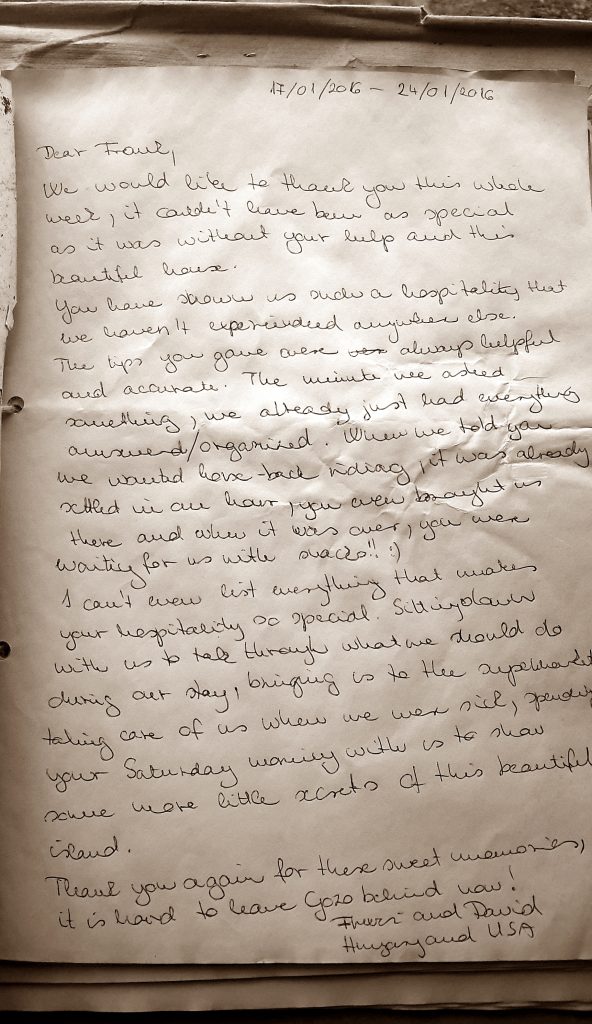 17/01/2016 - 24/01/2016
Dear Frank,
We would like to thank you this whole
week, it couldn't have been as special
as it was without your help and this
beautiful house.
You have shown us such a hospitality that
we haven't experiendeed anywhere else.
The tips you gave were always helpful
and accurate. The minute we asked
something, we already just had everything
answered/organized. When we told you
we wanted horse-back riding, it was already
settled in an hour, you even brought us
there and when it was over, you were
waiting for us with snacks!! :)
I can't even list everything that makes
your hospitality so special. Sitting down
with us to talk through what we should do
during our stay, bringing us to the supermarket
taking care of us when we were sick, spending
your Saturday morning with us to show
some more little secrets of this beautiful
island.
Thank you again for these sweet memories,
it is hard to leave Gozo behind now!
and David
Hungary and USA